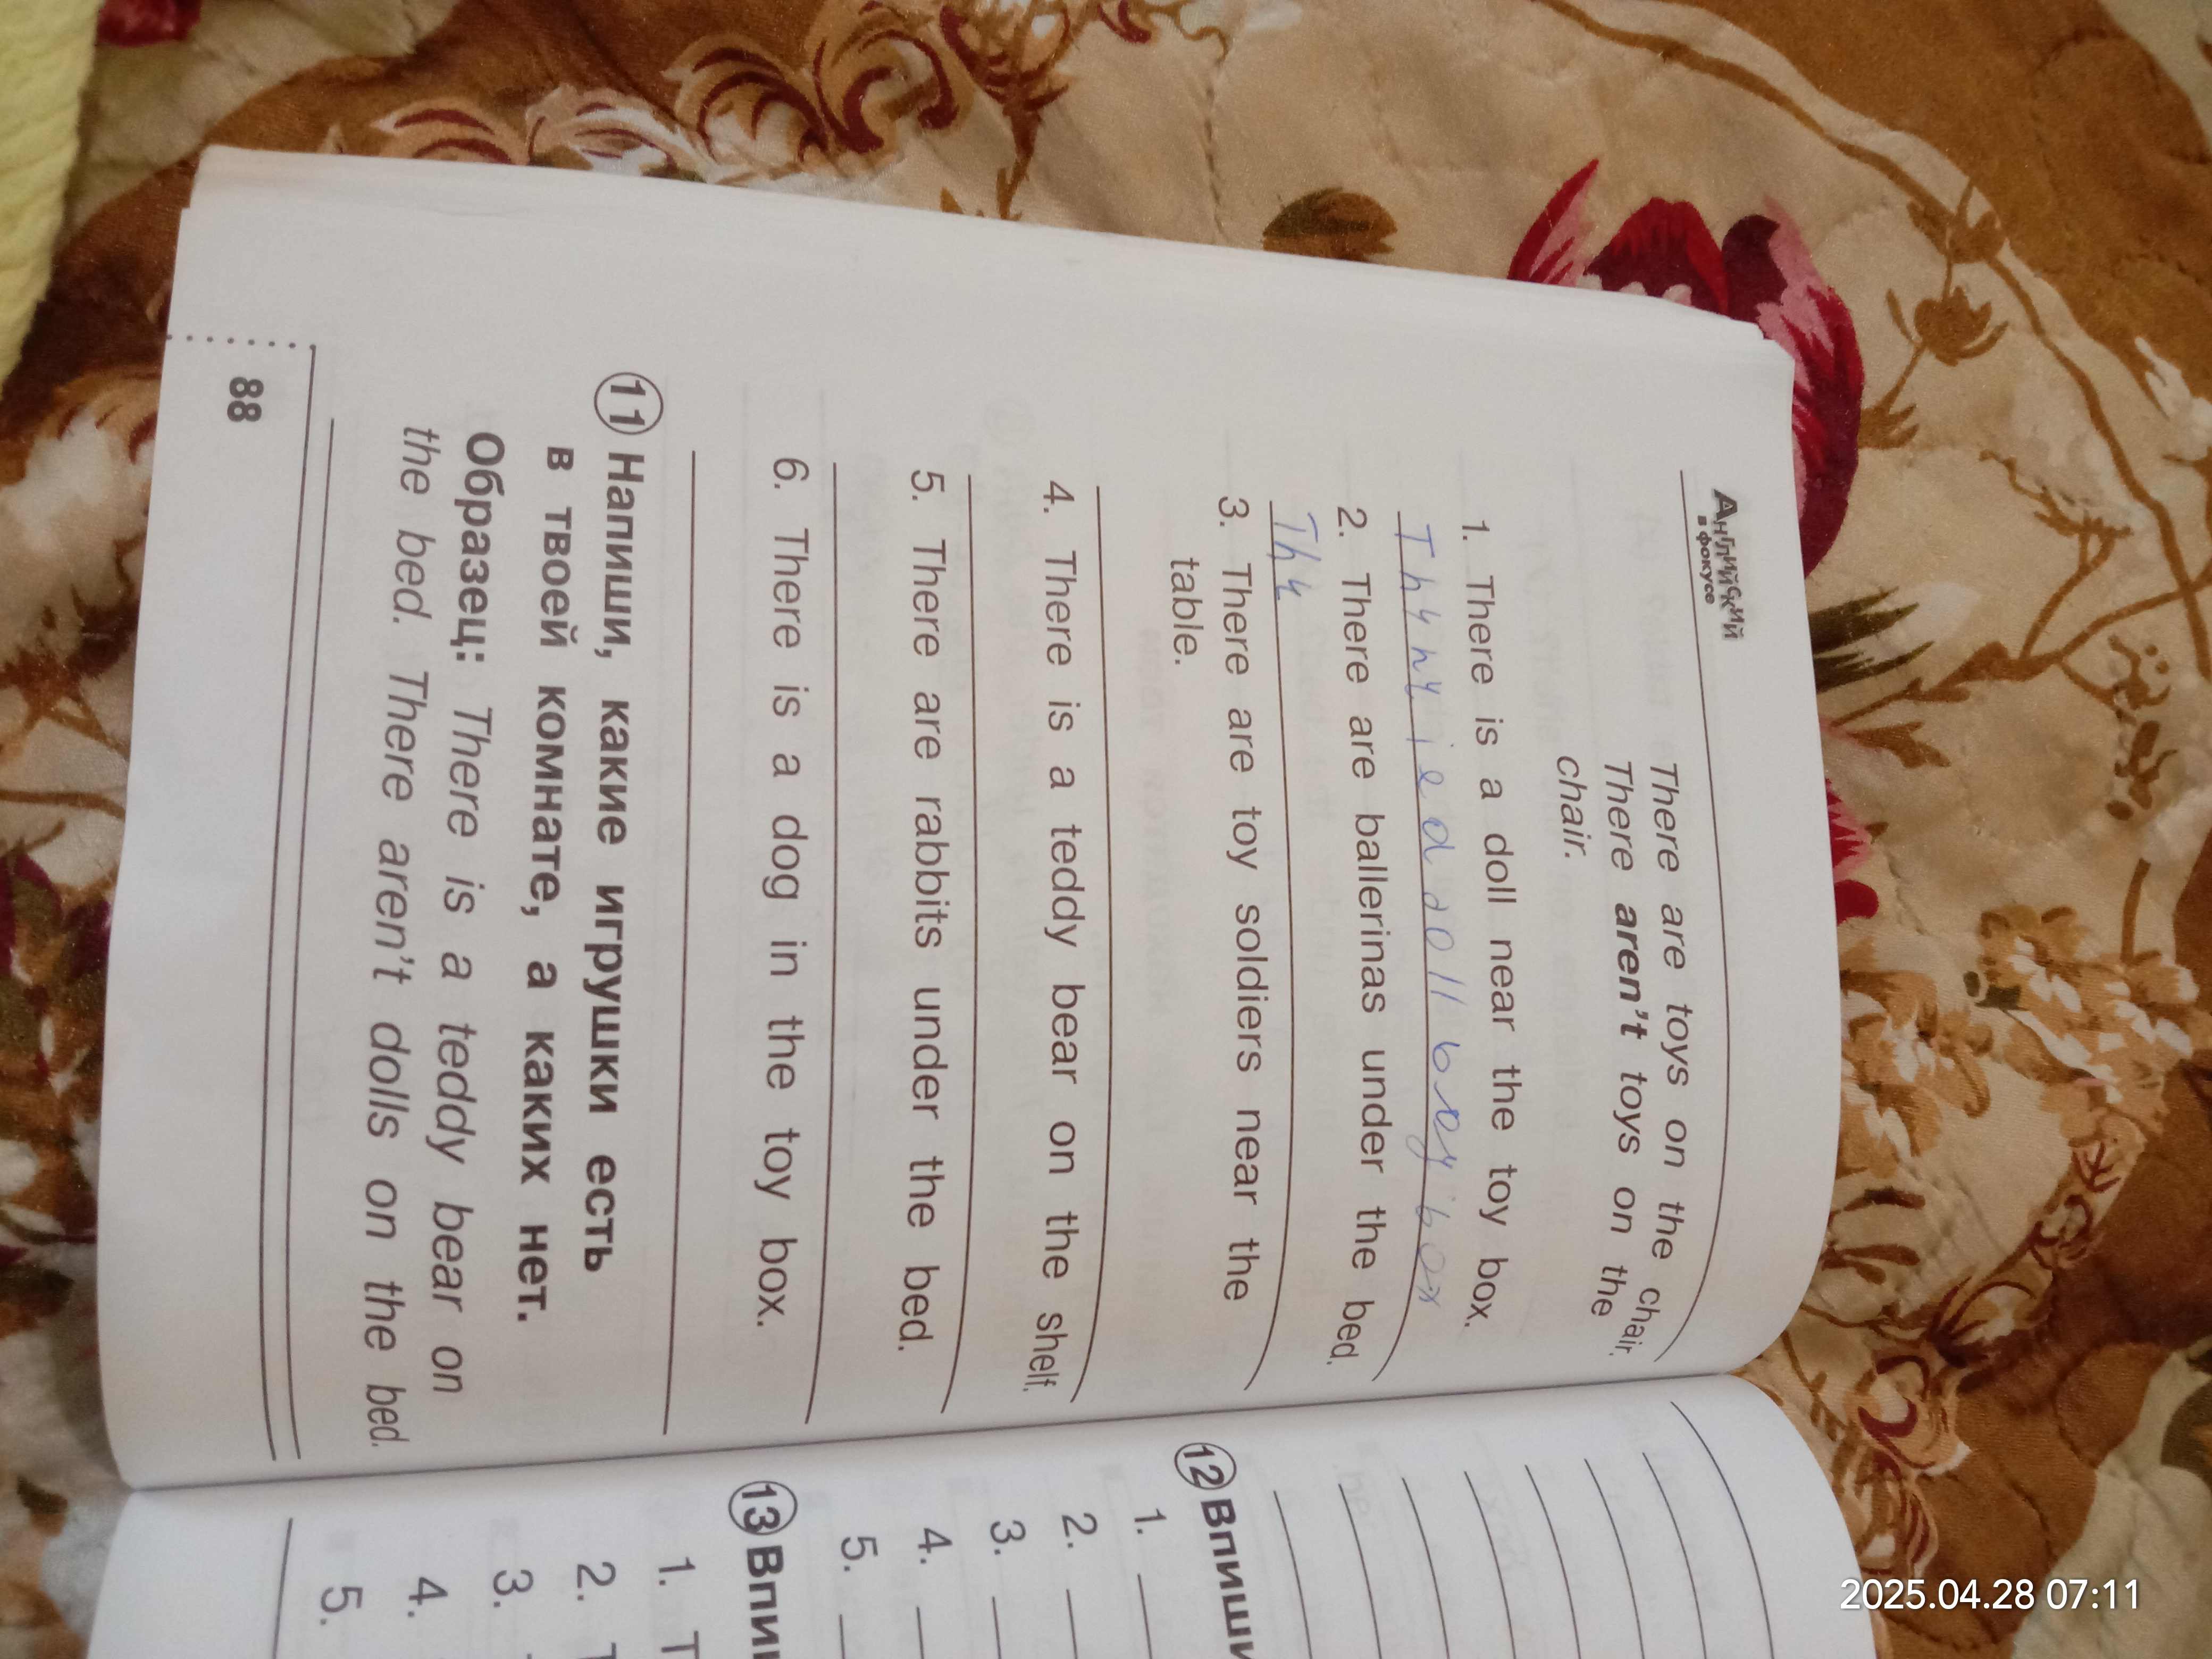 Английский
в фокусе
There are toys on the chair.
There aren't toys on the
chair.
1. There is a doll near the toy box.
2. There are ballerinas under the bed.
3. There are toy soldiers near the
table.
4. There is a teddy bear on the shelf.
5. There are rabbits under the bed.
6. There is a dog in the toy box.
11 Напиши, какие игрушки есть
в твоей комнате, а каких нет.
Образец: There is a teddy bear on
the bed. There aren't dolls on the bed.
88
12 Впиши
1.
2.
3.
4.
5.
13
1. T
2. T
3.
4.
5.
2025.04.28 07:11